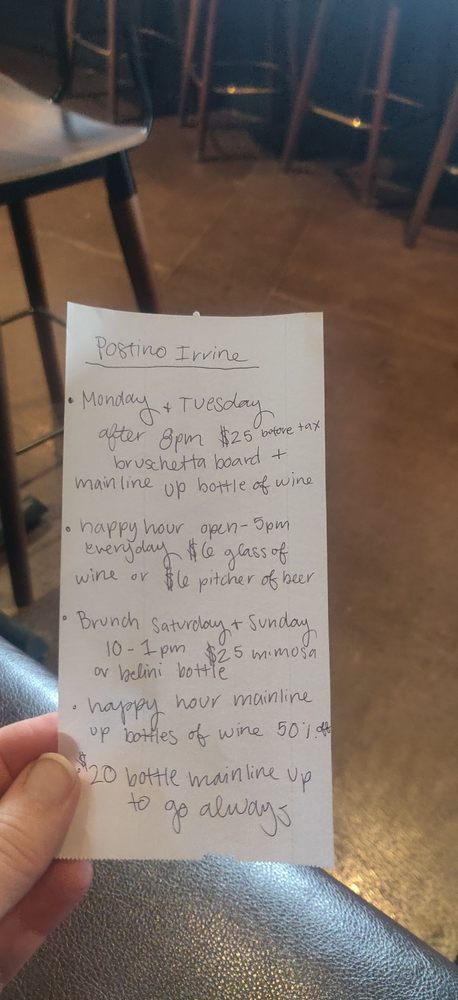 Postino Irvine
• Monday + Tuesday
after 8pm $25 before tax
bruschetta board +
mainline up bottle of wine
• happy hour open-5pm
everyday $6 glass of
wine or $6 pitcher of beer
• Brunch Saturday + Sunday
10-1pm $25 mimosa
or belini bottle
• happy hour mainline
up bottles of wine 50% off
• $20 bottle mainline up
to go always